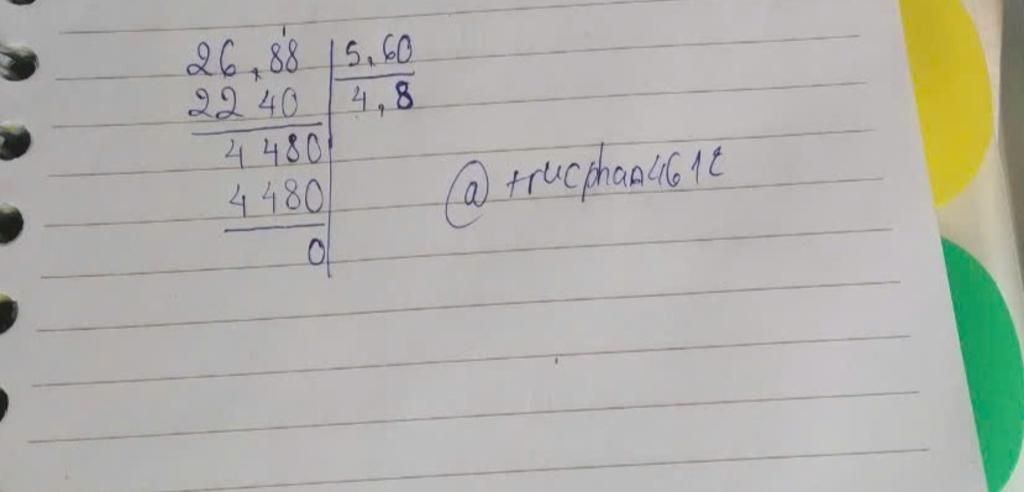 26,88 | 5,60
22 40 | 4,8
4 480
4 480
0
@trucphan4612